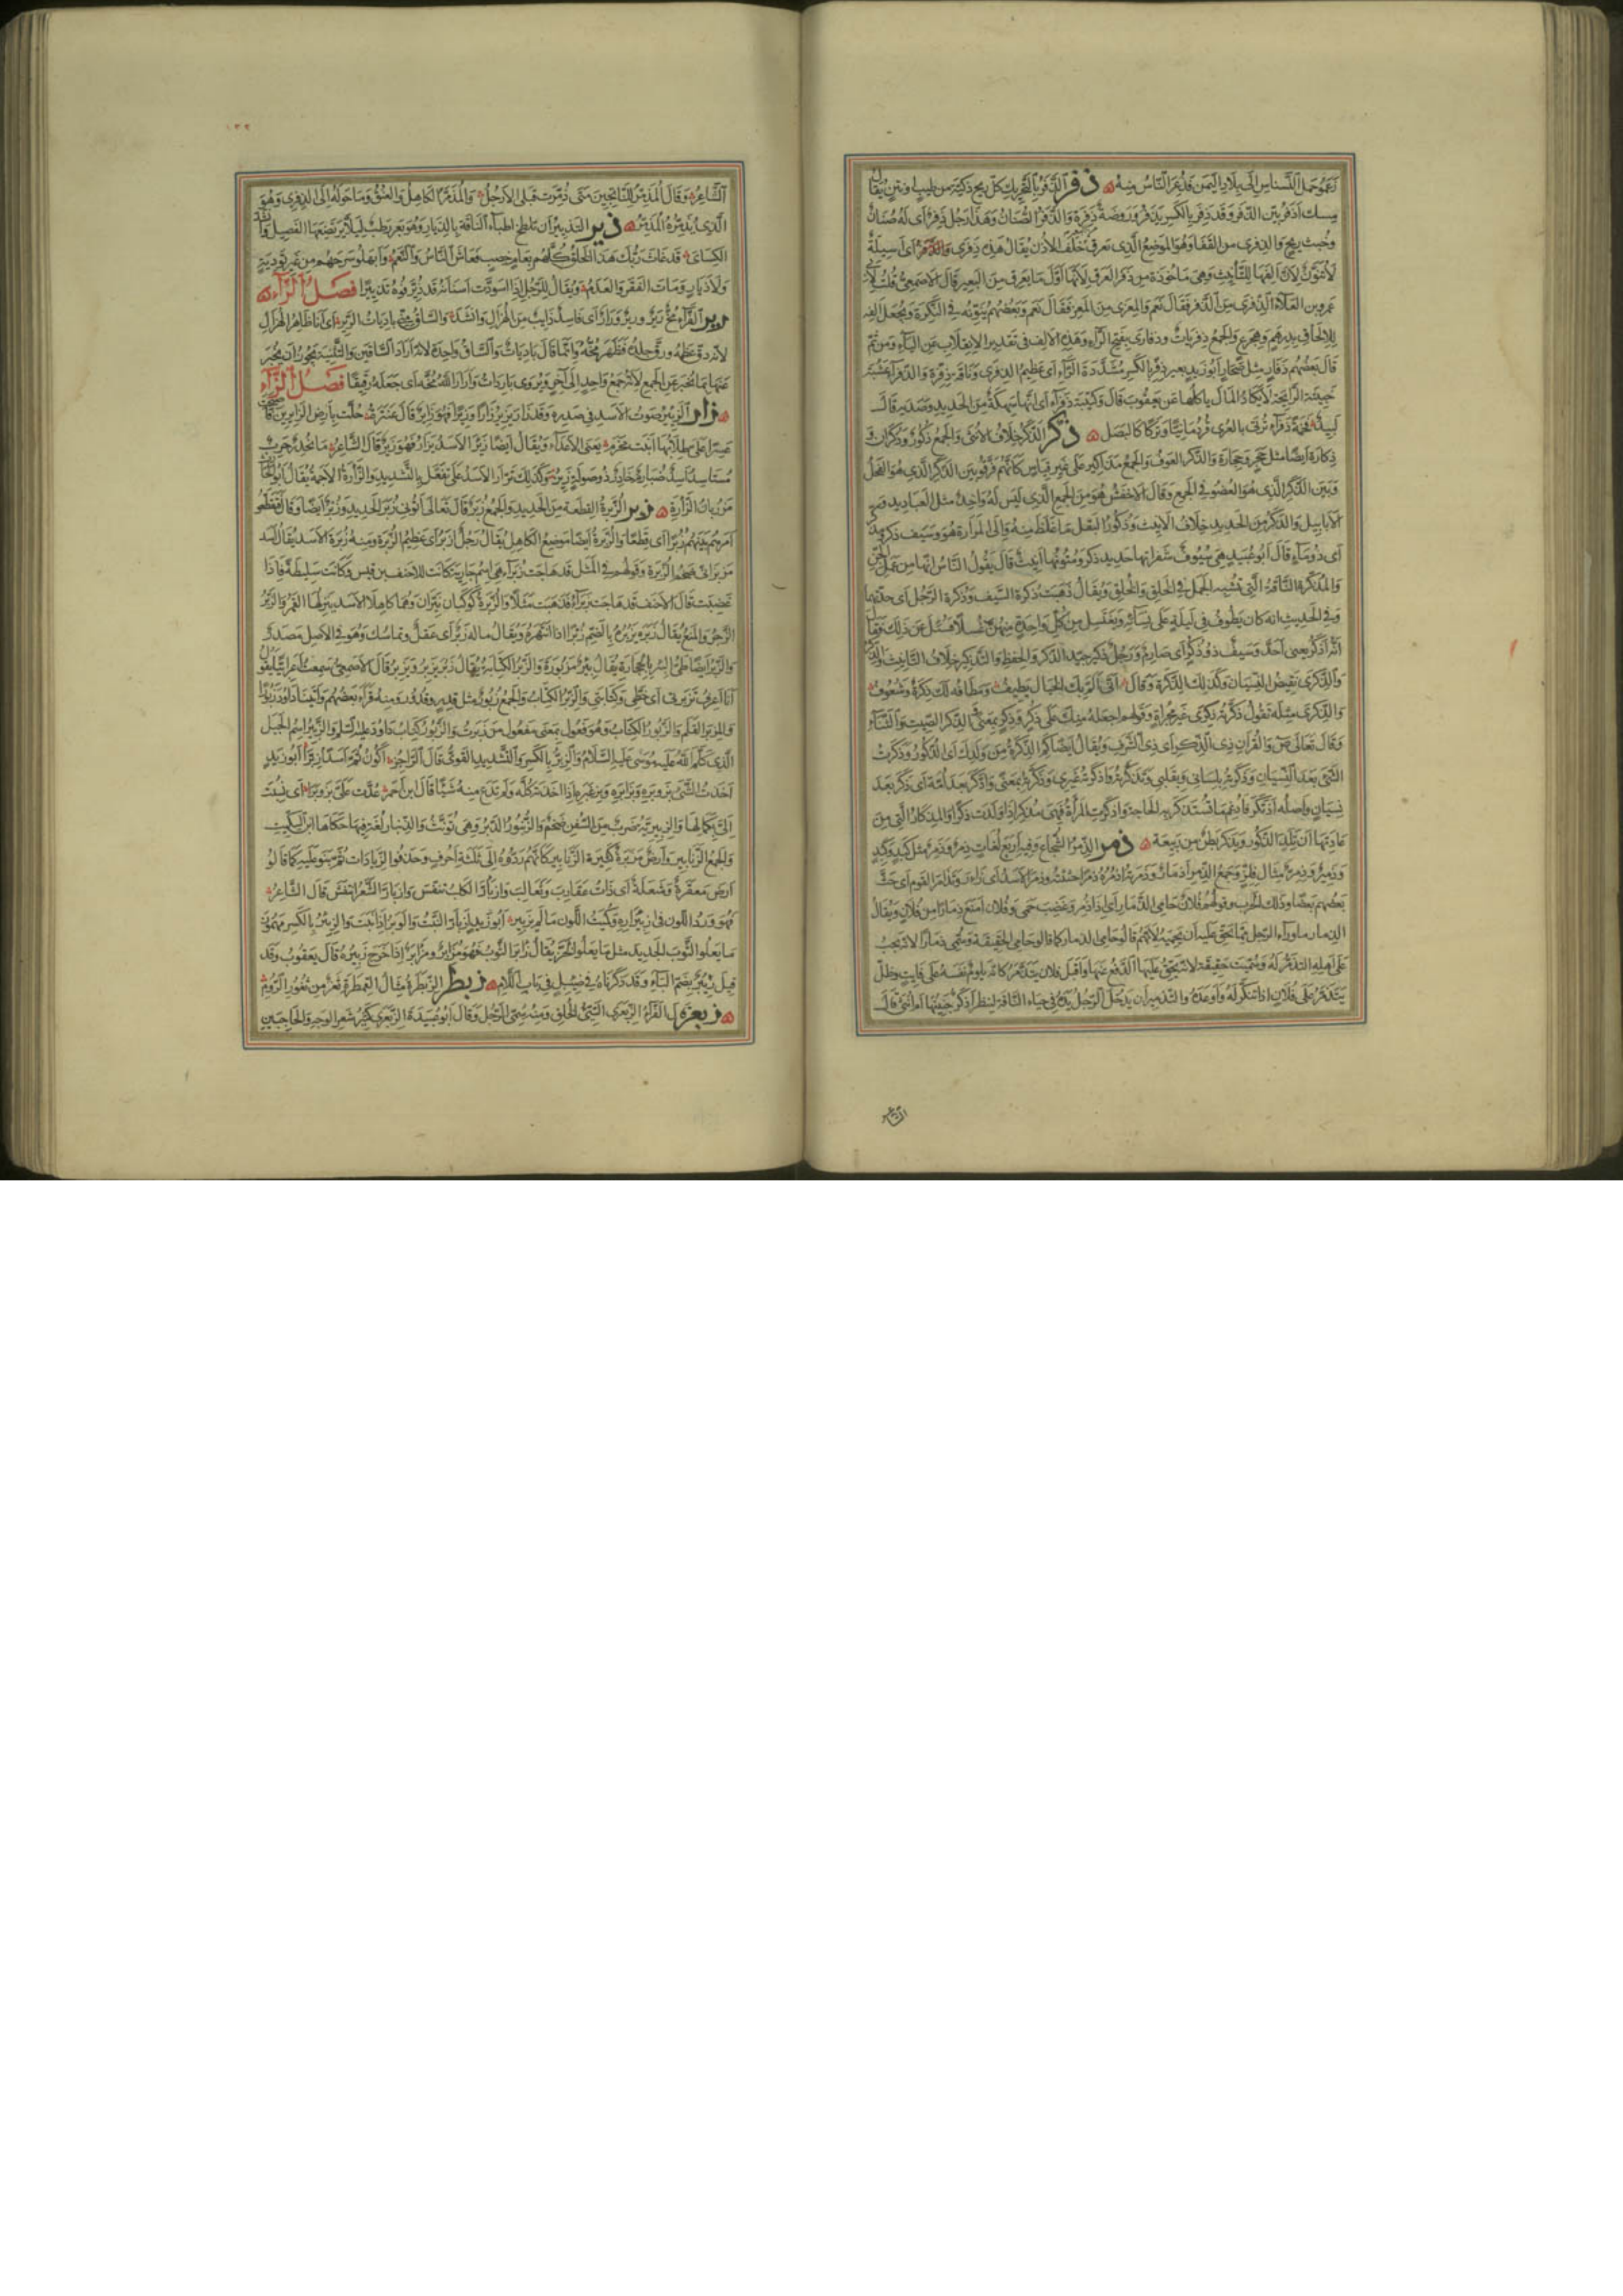 زعموا حمل النسناس الى بلاد اليمن فذعر الناس منه ذفر الذفر بالتحريك كل ريح ذكية من طيب او نتن يقال
مسك اذفر بين الذفر وقد ذفر بالكسر يذفر وروضة ذفرة والذفر الصنان وهذا رجل ذفر اى له صنان
وخبث ريح والذفرى من القفا وهو الموضع الذى يعرق من البعير خلف الاذن يقال هذه ذفرى اسيلة
لا تنون لان الفها للتأنيث وهى مأخوذة من ذفر العرق لانها اول ما يعرق من البعير قال الاصمعى قلت لابى
عمرو بن العلاء الذفرى من الذفر فقال نعم والمعزى من المعز فقال نعم وبعضهم ينونه فى النكرة ويجعل الفه
للالحاق بدرهم وهجرع والجمع ذفريات وذفارى بفتح الراء وهذه الالف فى تقدير الانقلاب عن الياء ومن ثم
قال بعضهم ذفار مثل صحار ابو زيد بعير ذفر بالكسر مشددة الراء اى عظيم الذفرى وناقة ذفرة والذفراء عشبة
خبيثة الرائحة لا يكاد المال ياكلها عن يعقوب قال وكتيبة ذفراء اى انها سهكة من الحديد وصدئه قال
لبيد فخمة ذفراء ترتى بالعرى قردمانيا وتركا كالبصل ذكر الذكر خلاف الانثى والجمع ذكور وذكران و
ذكارة ايضا مثل حجر وحجارة والذكر العوف والجمع مذاكير على غير قياس كانهم فرقوا بين الذكر الذى هو الفحل
وبين الذكر الذى هو العضو فى الجمع وقال الاخفش هو من الجمع الذى ليس له واحد مثل العباديد و
الابابيل والذكر من الحديد خلاف الانيث وذكور البقل ما غلظ منه والى المرارة هو وسيف ذكر ومذكر
اى ذو ماء قال ابو عبيد هى سيوف شفراتها حديد ذكر ومتونها انيث قال يقول الناس انها من عمل الجن
والمذكرة الناقة التى تشبه الجمل فى الخلق والخلق ويقال ذهبت ذكرة السيف وذكرة الرجل اى حدتهما
وفى الحديث انه كان يطوف فى ليلة على نسائه ويغتسل من كل واحدة منهن غسلا فسئل عن ذلك فقال
انه اذكر يعنى احد وسيف ذو ذكر اى صارم ورجل ذكير جيد الذكر والحفظ والتذكير خلاف التانيث والذكر
والذكرى نقيض النسيان وكذلك الذكرة وقال انى الم بك الخيال يطيف ومطافه لك ذكرة وشعوف
والذكرى مثله تقول ذكرته ذكرى غير مجراة وقولهم اجعله منك على ذكر وذكر بمعنى والذكر الصيت والثناء
وقال تعالى ص والقرآن ذى الذكر اى ذى الشرف ويقال ايضا كم الذكرة من ولدك اى الذكور وذكرت
الشئ بعد النسيان وذكرته بلسانى وبقلبى وتذكرته واذكرته غيرى وذكرته بمعنى واذكر بعد امة اى ذكر بعد
نسيان واصله اذتكر فادغم ما تستذكر به الحاجة واذكرت المرأة فهى مذكر اذا ولدت ذكرا والمذكار التى من
عادتها ان تلد الذكور ويذكر بطن من ربيعة ذمر الذمر الشجاع وفيه اربع لغات ذمر وذمر مثل كبد وكبد
وذمير وذمر مثال فلز وجمع الذمر اذمار وذمرته اذمره ذمرا حثثته وذمر الاسد اى زأر وتذامر القوم اى حث
بعضهم بعضا وذلك فى الحرب وقولهم فلان حامى الذمار اى اذا ذمر وغضب حمى وفلان امنع ذمارا من فلان ويقال
الذمار ما وراء الرجل مما يحق عليه ان يحميه لانهم قالوا حامى الذمار كما قالوا حامى الحقيقة وسمى ذمارا لانه يجب
على اهله التذمر له وسميت حقيقة لانه يحق عليها الدفع عنها واقبل فلان يتذمر كانه يلوم نفسه على فائت وظل
يتذمر على فلان اذا تنكر له واوعده والتذمير ان يدخل الرجل يده فى حياء الناقة لينظر اذكر جنينها ام انثى قال
الشاعر
١٣٢
الشاعر وقال المذمر للناتجين متى ذمرت قبلى الارجل والمذمر الكاهل والعنق وما حوله الى الذفرى وهو
الذى يذمره المذمر ذير التذيير ان تلطخ اطباء الناقة بالذيار وهو بعر رطب ليلا يرتضعها الفصيل وانشد
الكسائى قد غاث ربك هذا الخلق كلهم بعام خصب فعاش الناس والنعم وابهلوا سرحهم من غير تودية
ولا ذيار ومات الفقر والعدم ويقال للرجل اذا اسودت اسنانه قد ذير فوه تذييرا فصل الراء
رير الفراء مخ رير ورير ورار اى فاسد ذايب من الهزال وانشد والساق منى باديات الرير اى انا ظاهر الهزال
لانه دق عظمه ورق جلده فظهر مخه وانما قال باديات والساق واحدة لانه اراد الساقين والتثنية يجوز ان يخبر
عنها بما يخبر عن الجمع لانه جمع واحد الى آخر ويروى باردات وارار الله مخه اى جعله رقيقا فصل الزاء
زأر الزئير صوت الاسد فى صدره وقد زأر يزئر زأرا وزئيرا فهو زائر قال عنترة حلت بارض الزائرين فاصبحت
عسرا على طلابها ابنة مخرم يعنى الاعداء ويقال ايضا زئر الاسد يزأر فهو زئر قال الشاعر ما مخدر حرب
مستاسد اسد ضبارم خادر ذو صولة زئر وكذلك تزأر الاسد على تفعل بالتشديد والزأرة الاجمة يقال ابو الحارث
مرزبان الزأرة زبر الزبرة القطعة من الحديد والجمع زبر قال تعالى آتونى زبر الحديد وزبر ايضا وقال فتقطعوا
امرهم بينهم زبرا اى قطعا والزبرة ايضا موضع الكاهل يقال رجل ازبر اى عظيم الزبرة ومنه زبرة الاسد يقال اسد
مزبرانى ضخم الزبرة وقولهم فى المثل قد هاجت زبراء هى اسم جارية كانت للاحنف بن قيس وكانت سليطة فاذا
غضبت قال الاحنف قد هاجت زبراء فذهبت مثلا والزبرة كوكبان نيران وهما كاهلا الاسد ينزلها القمر والزبر
الزجر والمنع يقال زبره يزبره بالضم زبرا اذا انتهره ويقال ما له زبر اى عقل وتماسك وهو فى الاصل مصدر
والزبر ايضا طى البئر بالحجارة يقال بئر مزبورة والزبر الكتابة يقال زبر يزبر ويزبر قال الاصمعى سمعت اعرابيا يقول
انا اعرف تزبرتى اى خطى وكتابتى والزبر الكتاب والجمع زبور مثل قدر وقدور ومنه قرأ بعضهم وآتينا داود زبورا
والمزبر القلم والزبور الكتاب وهو فعول بمعنى مفعول من زبرت والزبور كتاب داود عليه السلم والزبير اسم الجبل
الذى كلم الله عليه موسى عليه السلام والزبر بالكسر والتشديد القوى قال الراجز اكون ثم اسدا زبرا ابو زيد
اخذت الشئ بزوبره وبزابره وبزغبره اذا اخذته كله ولم تدع منه شيئا قال ابن احمر عدت على بزوبرا اى نسبت
الى بكمالها والزنبرية ضرب من السفن ضخم والزنبور الدبر وهى تؤنث والزنبار لغة فيها حكاها ابن السكيت
والجمع الزنابير وارض مزبرة كثيرة الزنابير كانهم ردوه الى ثلثة احرف وحذفوا الزيادات ثم بنوا عليه كما قالوا
ارض معقرة ومثعلة اى ذات عقارب وثعالب وازبأر الكلب تنفش وازبأر الشعر انتفش قال الشاعر
فهو ورد اللون فى ازبئراره وكميت اللون ما لم يزبئر ابو زيد ازبأر النبت والوبر اذا نبت والزئبر بالكسر مهموز
ما يعلو الثوب الجديد مثل ما يعلو الخز يقال زأبر الثوب فهو مزأبر ومزأبر اذا خرج زئبره قال يعقوب وقد
قيل زئبر بضم الباء وقد ذكرناه فى ضئبل فى باب اللام زبطر الزبطرة مثال القمطرة ثغر من ثغور الروم
زبعر قال الفراء الزبعرى السئ الخلق ومنه سمى الرجل وقال ابو عبيدة الزبعرى كثير شعر الوجه والحاجبين